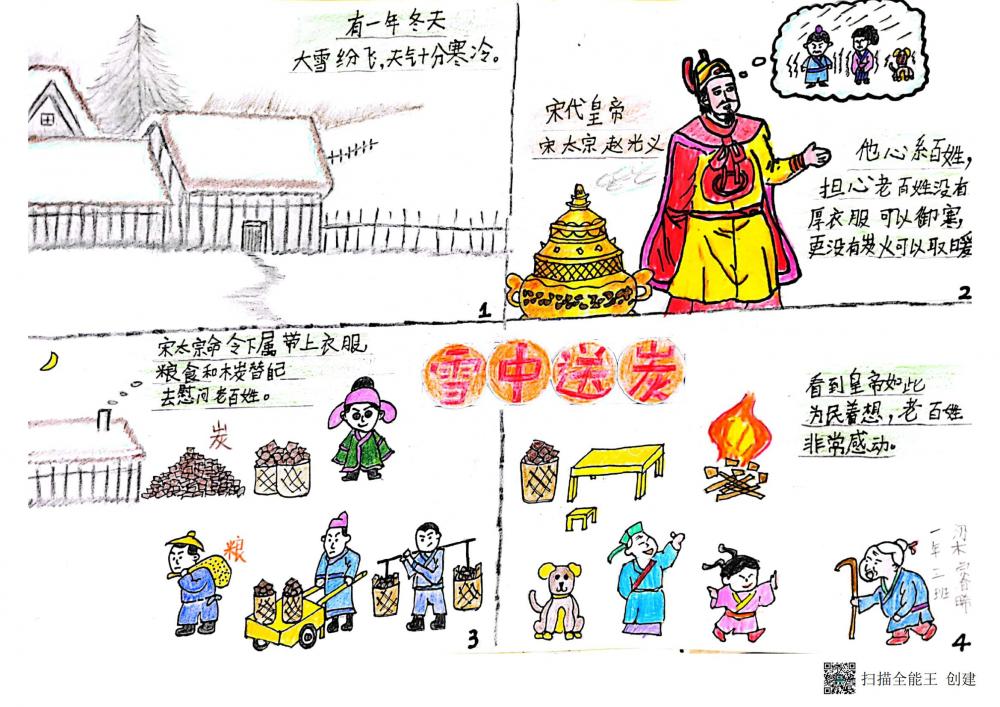 有一年冬天
大雪纷飞,天气十分寒冷。
1
宋代皇帝
宋太宗赵光义
他心系百姓,
担心老百姓没有
厚衣服可以御寒,
更没有炭火可以取暖
2
雪中送炭
宋太宗命令下属带上衣服
粮食和
去慰问老百姓。
炭
粮
3
看到皇帝如此
为民着想,老百姓
非常感动。
一年二班
4
扫描全能王 创建